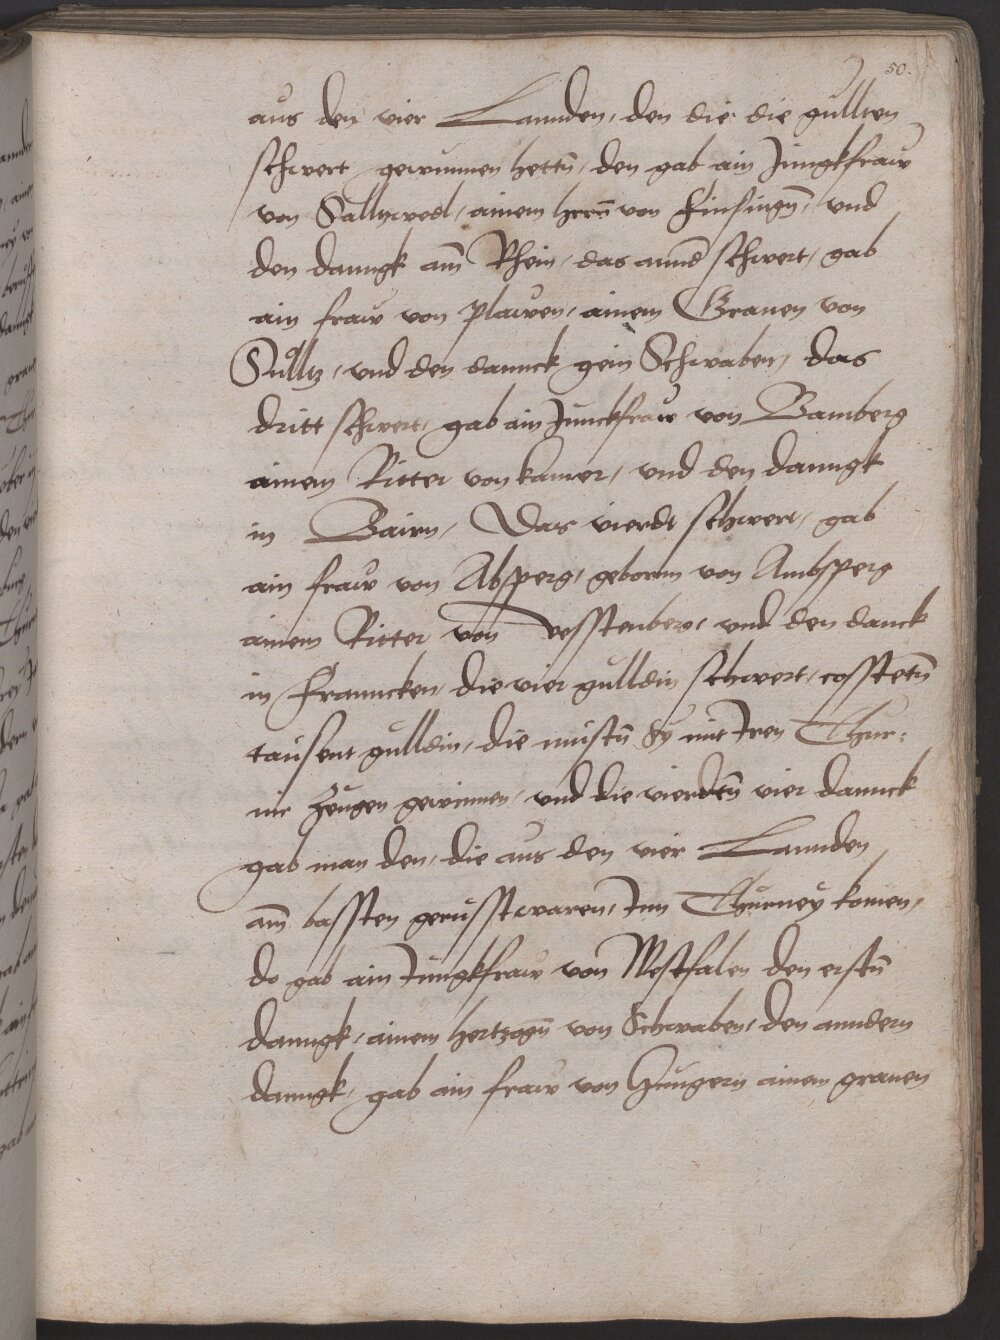 50.
aus den vier Lannden, den die die gullten
schwert gewunnen hettn̄, den gab ain Jungkfraw
von Salltzwedl, ainem herrn̄ von Finsingn̄, und
den danngk am̄ Rhein, das annd schwert, gab
ain fraw von Plawen, ainem Graven von
Sulltz, und den dannck gein Schwaben, das
dritt schwert, gab ain Junckfraw von Bamberg
ainem Ritter von kamer, und den danngk
in Bairn, Das vierdt schwert, gab
ain fraw von Absperg, gebornn von Ambsperg
ainem Ritter von Vesstenberg, und den danck
in Francken, die vier gulldin schwert, cosstetn̄
tausent gulldin, die mustn̄ Sy mit Iren Thur:
nir zeugen gewinnen, und die vierdtn̄ vier dannck
gab man den, die aus den vier Lannden
am̄ bassten gerusst waren, Inn Thurney komen,
do gab ain Jungkfraw von Westfalen den erstn̄
danngk, ainem hertzogn̄ von Schwaben, den anndern
danngk, gab ain fraw von Hungern ainem graven